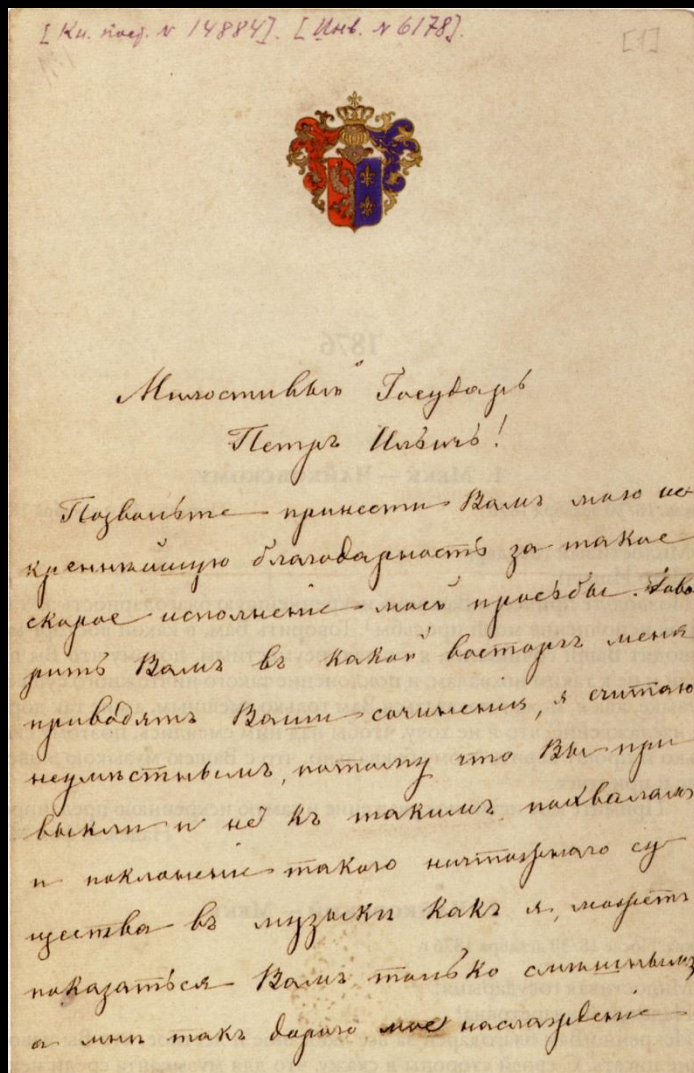 [Кн. пост. № 14884]. [Инв. № 6178].
[1]
Милостивый Государь
Петръ Ильичъ!
Позвольте принести Вамъ мою ис
креннѣйшую благодарность за такое
скорое исполненіе моей просьбы. Гово
рить Вамъ въ какой восторгъ меня
приводятъ Ваши сочиненія, я считаю
неумѣстнымъ, потому что Вы при
выкли и не къ такимъ похваламъ
и поклоненіе такого ничтожнаго су
щества въ музыкѣ какъ я, можетъ
показаться Вамъ только смѣшнымъ
а мнѣ такъ дорого мое наслажденіе
1876
1. Мекк — Чайковскому